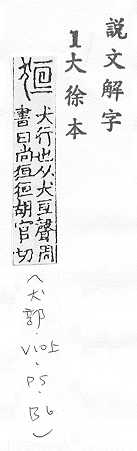 說文解字
1大徐本
狟
犬行也从犬亘聲周
書曰尚狟狟胡官切
(犬部·V10上·P5·B6)